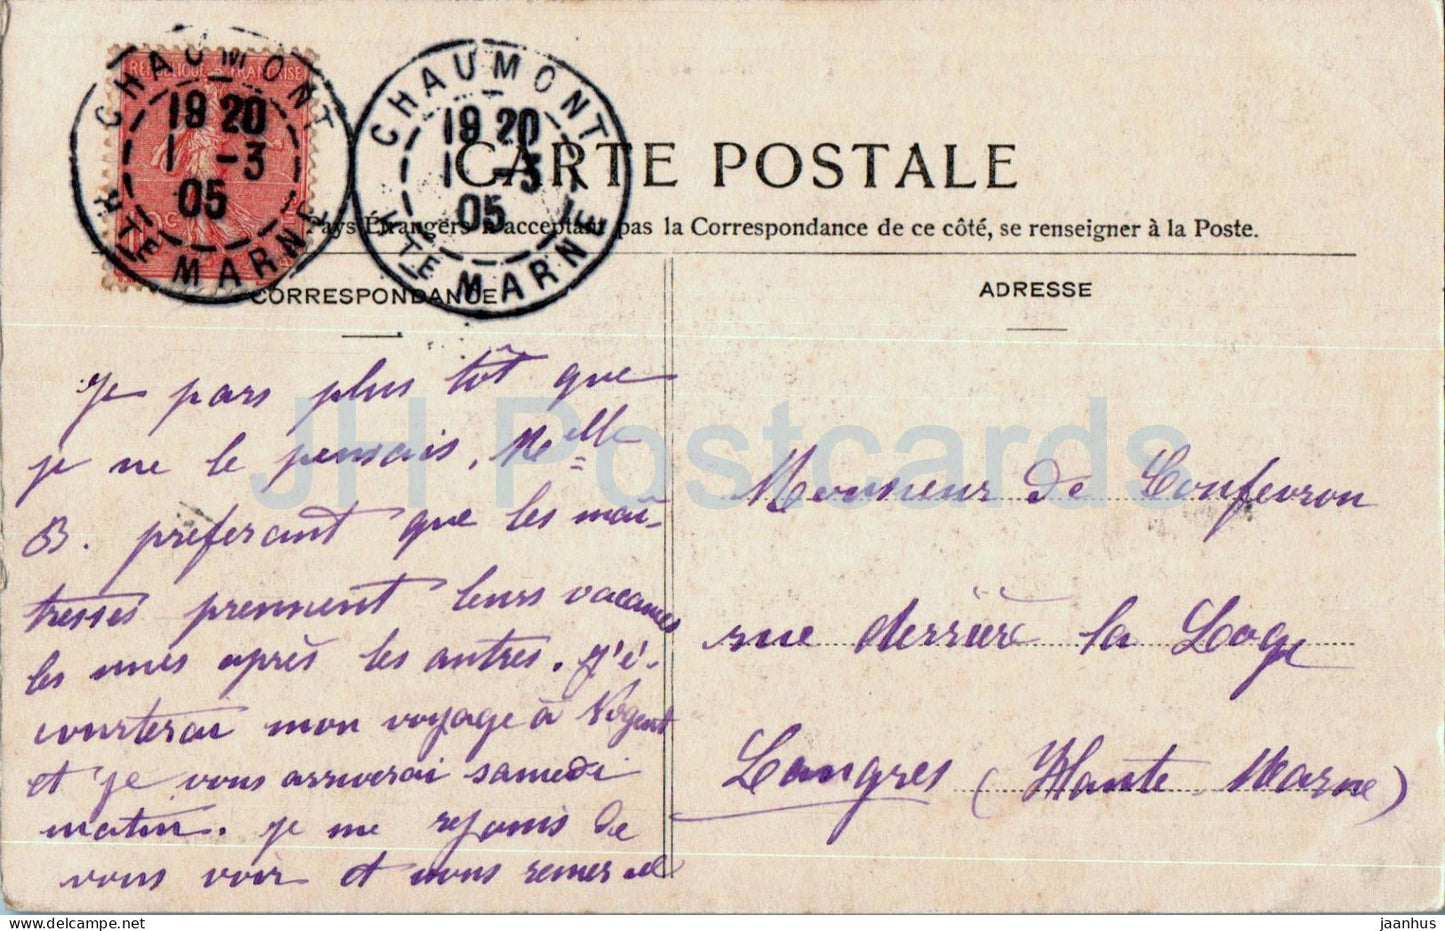 REPUBLIQUE FRANCAISE
CHAUMONT
19 20
1 -3
05
HTE MARNE
CHAUMONT
19 20
1 -3
05
HTE MARNE
CARTE POSTALE
Pays Étrangers n'acceptant pas la Correspondance de ce côté, se renseigner à la Poste.
CORRESPONDANCE
ADRESSE
Je pars plus tôt que
je ne le pensais. Melle
B. préferant que les maî-
tresses prennent leurs vacances
les unes après les autres. J'é-
courterai mon voyage à Nogent
et je vous arriverai samedi
matin. Je me réjouis de
vous voir et vous remercie
Monsieur de Confevron
rue derrière la Loge
Langres (Haute Marne)
JH Postcards
jaanhus
delcampe.net